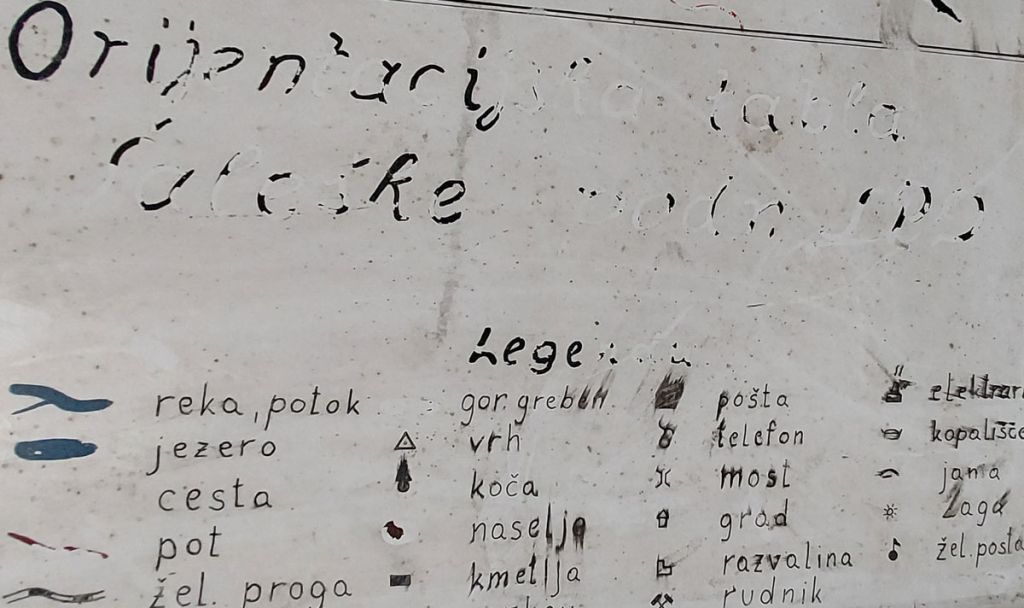 Orijentacijska tabla
Šaleške
Legenda
reka, potok
jezero
cesta
pot
žel. proga
gor. greben
vrh
koča
naselje
kmetija
pošta
telefon
most
grad
razvalina
rudnik
kopališče
jama
žaga
žel. posta